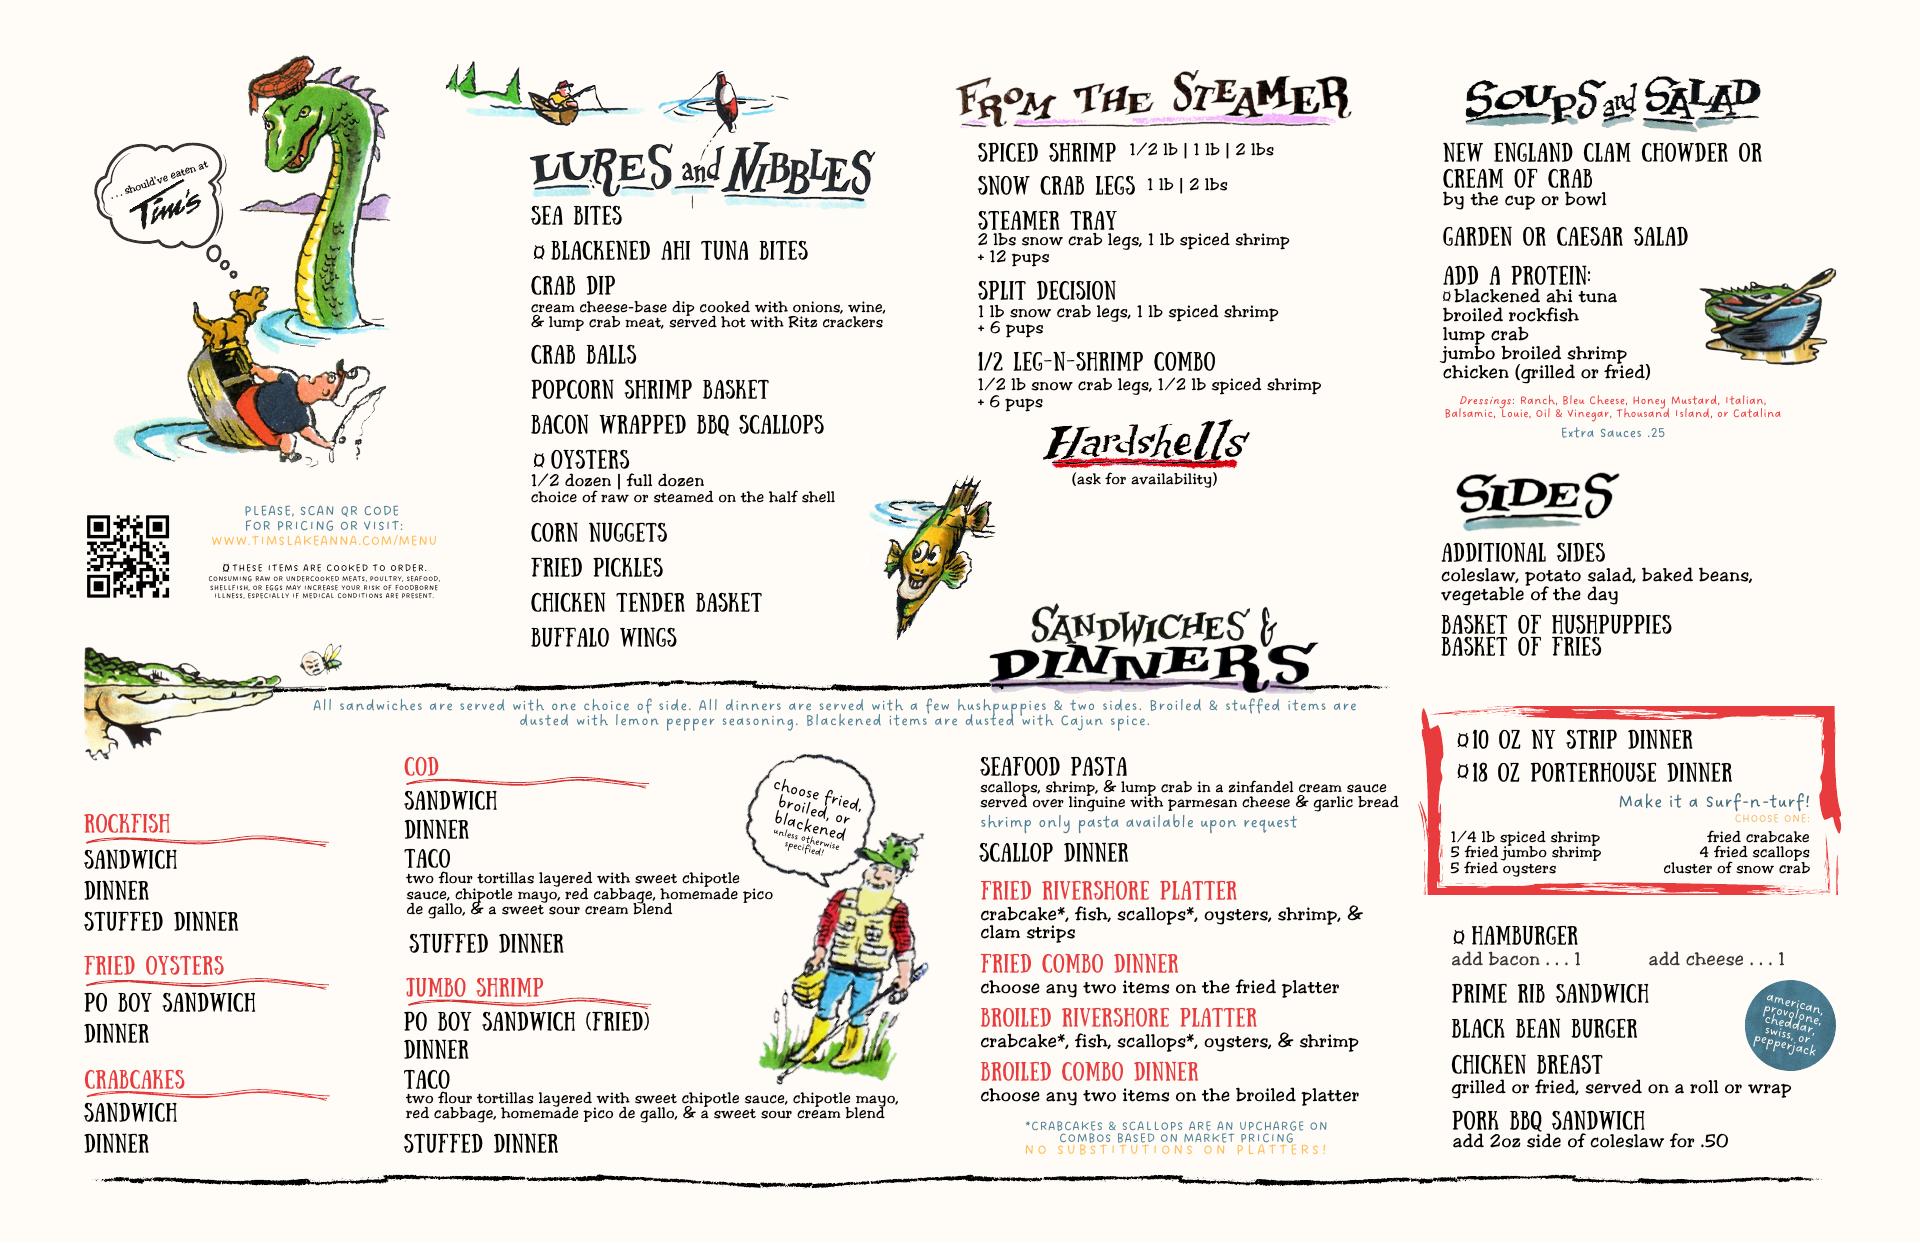 ...should've eaten at
Tim's
PLEASE, SCAN QR CODE
FOR PRICING OR VISIT:
WWW.TIMSLAKEANNA.COM/MENU
¤THESE ITEMS ARE COOKED TO ORDER.
CONSUMING RAW OR UNDERCOOKED MEATS, POULTRY, SEAFOOD,
SHELLFISH, OR EGGS MAY INCREASE YOUR RISK OF FOODBORNE
ILLNESS, ESPECIALLY IF MEDICAL CONDITIONS ARE PRESENT.
LURES and NIBBLES
SEA BITES
¤ BLACKENED AHI TUNA BITES
CRAB DIP
cream cheese-base dip cooked with onions, wine,
& lump crab meat, served hot with Ritz crackers
CRAB BALLS
POPCORN SHRIMP BASKET
BACON WRAPPED BBQ SCALLOPS
¤ OYSTERS
1/2 dozen | full dozen
choice of raw or steamed on the half shell
CORN NUGGETS
FRIED PICKLES
CHICKEN TENDER BASKET
BUFFALO WINGS
FROM THE STEAMER
SPICED SHRIMP 1/2 lb | 1 lb | 2 lbs
SNOW CRAB LEGS 1 lb | 2 lbs
STEAMER TRAY
2 lbs snow crab legs, 1 lb spiced shrimp
+ 12 pups
SPLIT DECISION
1 lb snow crab legs, 1 lb spiced shrimp
+ 6 pups
1/2 LEG-N-SHRIMP COMBO
1/2 lb snow crab legs, 1/2 lb spiced shrimp
+ 6 pups
Hardshells
(ask for availability)
SOUPS and SALAD
NEW ENGLAND CLAM CHOWDER OR
CREAM OF CRAB
by the cup or bowl
GARDEN OR CAESAR SALAD
ADD A PROTEIN:
¤ blackened ahi tuna
broiled rockfish
lump crab
jumbo broiled shrimp
chicken (grilled or fried)
Dressings: Ranch, Bleu Cheese, Honey Mustard, Italian,
Balsamic, Louie, Oil & Vinegar, Thousand Island, or Catalina
Extra Sauces .25
SIDES
ADDITIONAL SIDES
coleslaw, potato salad, baked beans,
vegetable of the day
BASKET OF HUSHPUPPIES
BASKET OF FRIES
SANDWICHES &
DINNERS
All sandwiches are served with one choice of side. All dinners are served with a few hushpuppies & two sides. Broiled & stuffed items are
dusted with lemon pepper seasoning. Blackened items are dusted with Cajun spice.
ROCKFISH
SANDWICH
DINNER
STUFFED DINNER
FRIED OYSTERS
PO BOY SANDWICH
DINNER
CRABCAKES
SANDWICH
DINNER
COD
SANDWICH
DINNER
TACO
two flour tortillas layered with sweet chipotle
sauce, chipotle mayo, red cabbage, homemade pico
de gallo, & a sweet sour cream blend
STUFFED DINNER
JUMBO SHRIMP
PO BOY SANDWICH (FRIED)
DINNER
TACO
two flour tortillas layered with sweet chipotle sauce, chipotle mayo,
red cabbage, homemade pico de gallo, & a sweet sour cream blend
STUFFED DINNER
choose fried,
broiled, or
blackened
unless otherwise
specified!
SEAFOOD PASTA
scallops, shrimp, & lump crab in a zinfandel cream sauce
served over linguine with parmesan cheese & garlic bread
shrimp only pasta available upon request
SCALLOP DINNER
FRIED RIVERSHORE PLATTER
crabcake*, fish, scallops*, oysters, shrimp, &
clam strips
FRIED COMBO DINNER
choose any two items on the fried platter
BROILED RIVERSHORE PLATTER
crabcake*, fish, scallops*, oysters, & shrimp
BROILED COMBO DINNER
choose any two items on the broiled platter
*CRABCAKES & SCALLOPS ARE AN UPCHARGE ON
COMBOS BASED ON MARKET PRICING
NO SUBSTITUTIONS ON PLATTERS!
¤10 OZ NY STRIP DINNER
¤18 OZ PORTERHOUSE DINNER
Make it a Surf-n-turf!
CHOOSE ONE:
1/4 lb spiced shrimp fried crabcake
5 fried jumbo shrimp 4 fried scallops
5 fried oysters cluster of snow crab
¤ HAMBURGER
add bacon . . . 1 add cheese . . . 1
PRIME RIB SANDWICH
BLACK BEAN BURGER
american,
provolone,
cheddar,
swiss, or
pepperjack
CHICKEN BREAST
grilled or fried, served on a roll or wrap
PORK BBQ SANDWICH
add 2oz side of coleslaw for .50